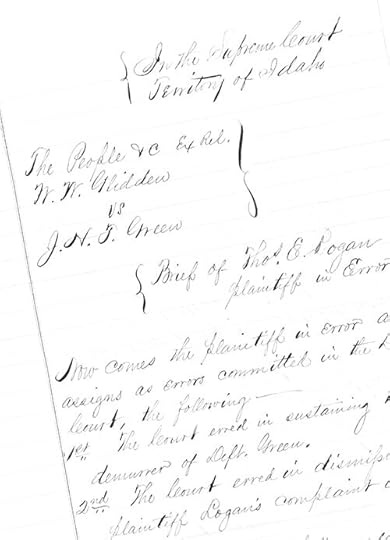 In the Supreme Court
Territory of Idaho
The People &c Ex Rel.
W. W. Glidden
vs
J. H. T. Green
Brief of Thos. E. Logan
plaintiff in Error
Now comes the plaintiff in error
assigns as errors committed in the
Court, the following —
1st The Court erred in sustaining
demurrer of Deft. Green.
2nd The Court erred in
plaintiff Logan's complaint